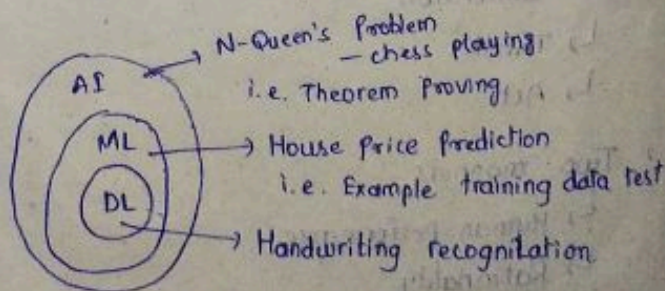 N-Queen's Problem
- chess playing
AI
i.e. Theorem Proving
ML
House Price Prediction
i.e. Example training data test
DL
Handwriting recognitation